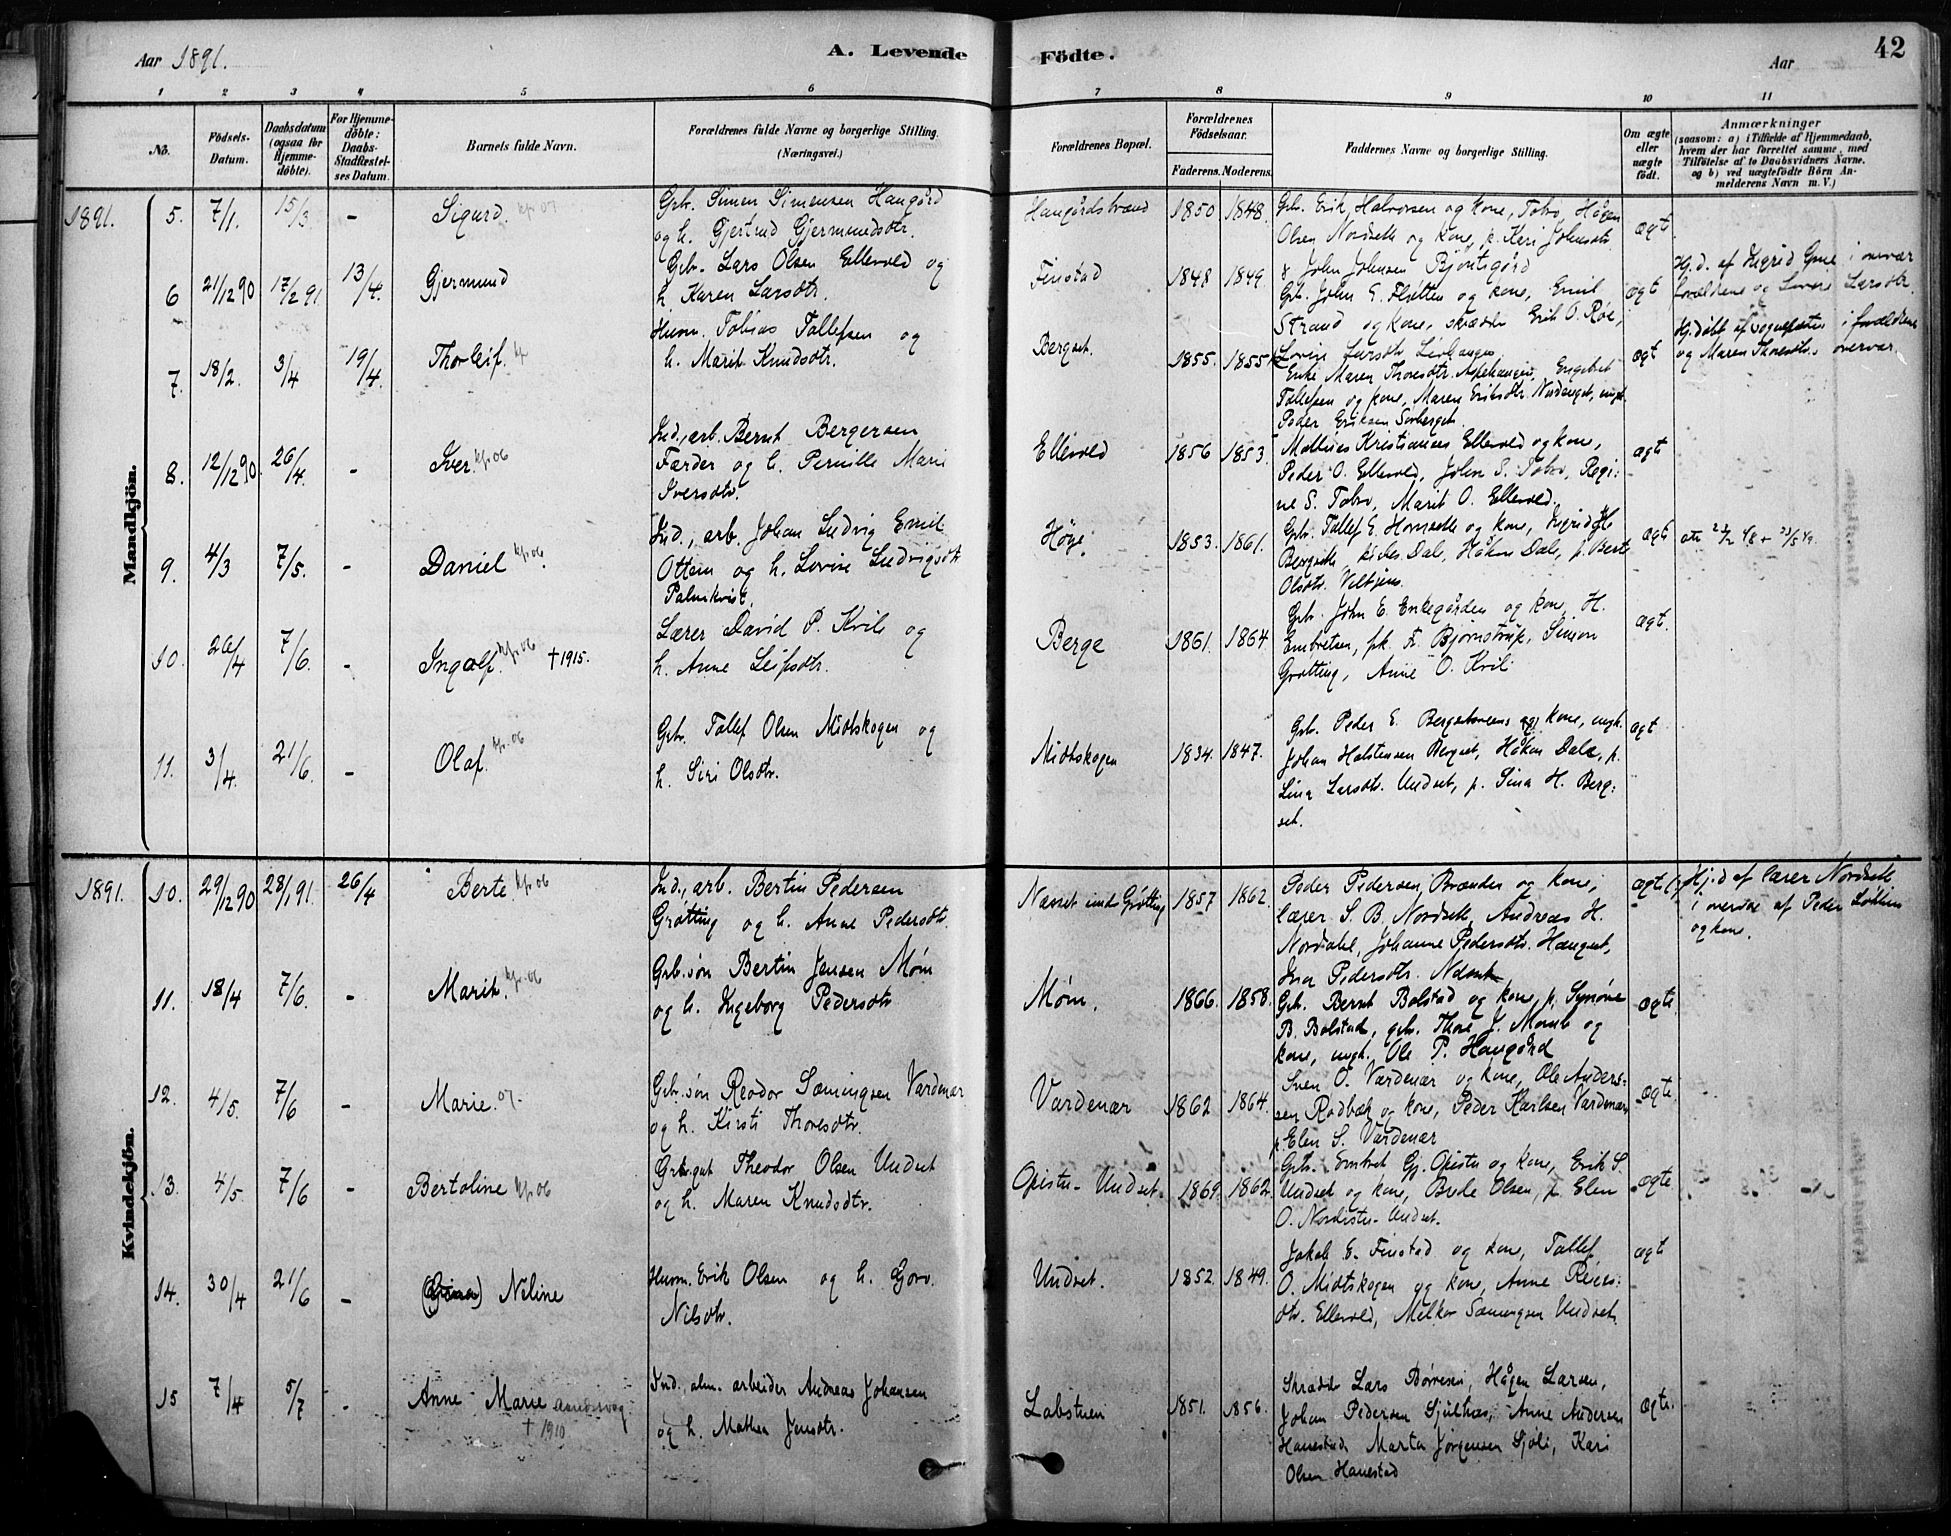 Aar 1891.
A. Levende Födte.
Aar
42
1 2 3 4 5 6 7 8 9 10 11
No.
Födsels-Datum.
Daabsdatum (ogsaa for Hjemme-döbte).
For Hjemme-döbte: Daabs-Stadfæstel-ses Datum.
Barnets fulde Navn.
Forældrenes fulde Navne og borgerlige Stilling. (Næringsvei.)
Forældrenes Bopæl.
Forældrenes Födselsaar.
Faderens. Moderens.
Faddernes Navne og borgerlige Stilling.
Om ægte eller uægte födt.
Anmærkninger
(saasom: a) i Tilfælde af Hjemmedaab, hvem der har forrettet samme, med Tilföielse af to Daabsvidners Navne, og b) ved uægtefödte Börn An-melderens Navn m. V.)
Mandkjön.
1891. 5. 7/1. 15/3 - Sigurd. kp 07
Grb. Simen Simensen Haugård
og h. Gjertrud Gjermundsdtr.
Haugårdstrænd 1850 1848.
Grb. Erik Halvorsen og kone, Tobro, Hågen
Olsen Nordsetle og kone, p. Kari Johnsdtr.
& John Johnsen Bjöntegård
ægt
6 21/12 90 17/2 91 13/4. Gjermund
Grb. Lars Olsen Ellevold og
h. Karen Larsdtr.
Finstad 1848 1849.
Grb. John E. Flåtten og kone, Emil
Strand og kone, skrædder Erik O. Röe,
Lovise Larsdtr.
ægt
Hj.d. af Ingrid i overvær
forældrene og Lovise Larsdtr.
7. 18/2. 3/4 19/4. Thorleif. kp
Husm. Tobias Tollefsen og
h. Marit Knudsdtr.
Bergset. 1855. 1855
Enke Maren Thoresdtr. Aspehaugen, Engebret
Tollefsen og kone, Maren Eriksdtr. Nordanget, ungk.
Peder Eriksen Sorberget.
ægt
Hj.döbt af sognepresten i forældrenes
og Maren Thoresdtr.s overvær
8. 12/12 90. 26/4. - Iver. kp. 06
Ind., arb. Bernt Bergersen
Færder og h. Pernille Marie
Iversdtr.
Ellevold 1856 1853.
Mathias Kristiansen Ellevold og kone,
Peder O. Ellevold, John S. Tobro, Regi:
ne S. Tobro, Marit O. Ellevold.
ægt
9. 4/3 7/5. - Daniel kp. 06.
Ind., arb. Johan Ludvig Emil
Ottem og h. Lovise Ludvigsdtr.
Palmkvist.
Höye. 1853. 1861.
Grb. Tollef E. Hornsetle og kone, Ingrid H.
Bergsetle, Dale, Håkon Dale, p. Berte
Olsdtr. Veltjern.
ægt
10. 26/4 7/6. - Ingolf. kp. 06 † 1915.
Lærer David P. Kvile og
h. Anne Leifsdtr.
Berge 1861. 1864
Grb. John E. Enkegården og kone, H.
Embretsen, frk. Fr. Bjornstrup, Simon
Gråtting, Anne O. Kvil
ægt.
11. 3/4. 21/6. - Olaf. kp. 06
Grb. Tollef Olsen Midtskogen og
h. Siri Olsdtr.
Midtskogen 1834. 1847.
Grb. Peder E. og kone, ungk.
Johan Halstensen Bergset, Håkon Dale, p.
Lina Larsdtr. Undset, p. Sina H. Berg:
set.
ægt
Kvindekjön.
1891. 10. 29/12 90 28/1 91. 26/4 Berte kp. 06
Ind., arb. Bertin Pedersen
Grøtting og h. Anne Pedersdtr.
Næsset under Gröttng 1857 1862.
Peder Pedersen Brænden og kone,
lærer S. B. Nordsetle, Andreas H.
Nordahl, Johanne Pedersdtr. Haugset,
Ina Pedersdtr.
ægte
Hj.d af lærer Nordsetle
i overvær af Peder Löklien
og kone.
11. 18/4 7/6. - Marit. kp. 06
Grb.sön Bertin Jensen Möm
og h. Ingeborg Pedersdtr
Möm. 1866. 1858.
Grb. Bernt Bolstad og kone, p. Synöve
B. Bolstad, grb. Thore J. Momb og
kone, ungk. Ole P. Haugård
ægte.
12. 4/5. 7/6 - Marie. 07.
Grb.sön Reodor Sæmingsen Vardenær
og h. Kirsti Thoresdtr.
Vardenær 1862 1864.
Sven O. Vardenær og kone, Ole Anders:
sen Rödbæk og kone, Peder Karlsen Vardenær
p. Elen S. Vardenær
ægte.
13. 4/5 7/6 - Bertoline kp. 06
Grb.gut Theodor Olsen Undset
og h. Maren Knudsdtr.
Opistu-Undset. 1869. 1862.
Grb. Embret Gj. Opistu og kone, Erik S.
Undset og kone, Brede Olsen, p. Elen
O. Nordistu-Undset.
ægte
14. 30/4 21/6 - Niline
Husm. Erik Olsen og h. Goro
Nilsdtr.
Undset. 1852. 1849.
Jakob E. Finstad og kone, Tollef
O. Midtskogen og kone, Anne Reiers:
dtr. Ellevold, Melkor Sæmingsen Undset.
ægt
15 7/4 5/7 - Anne Marie
† 1910
Ind., alm. arbeider Andreas Johansen
og h. Mathea Jensdtr.
Labstuen 1851. 1856.
Skrædder Lars Börresen, Hågen Larsen,
Johan Pedersen Sjulhus, Anne Andersen
Hanestad, Marta Jörgensen Sjöli, Kari
Olsen Hanestad
ægte.